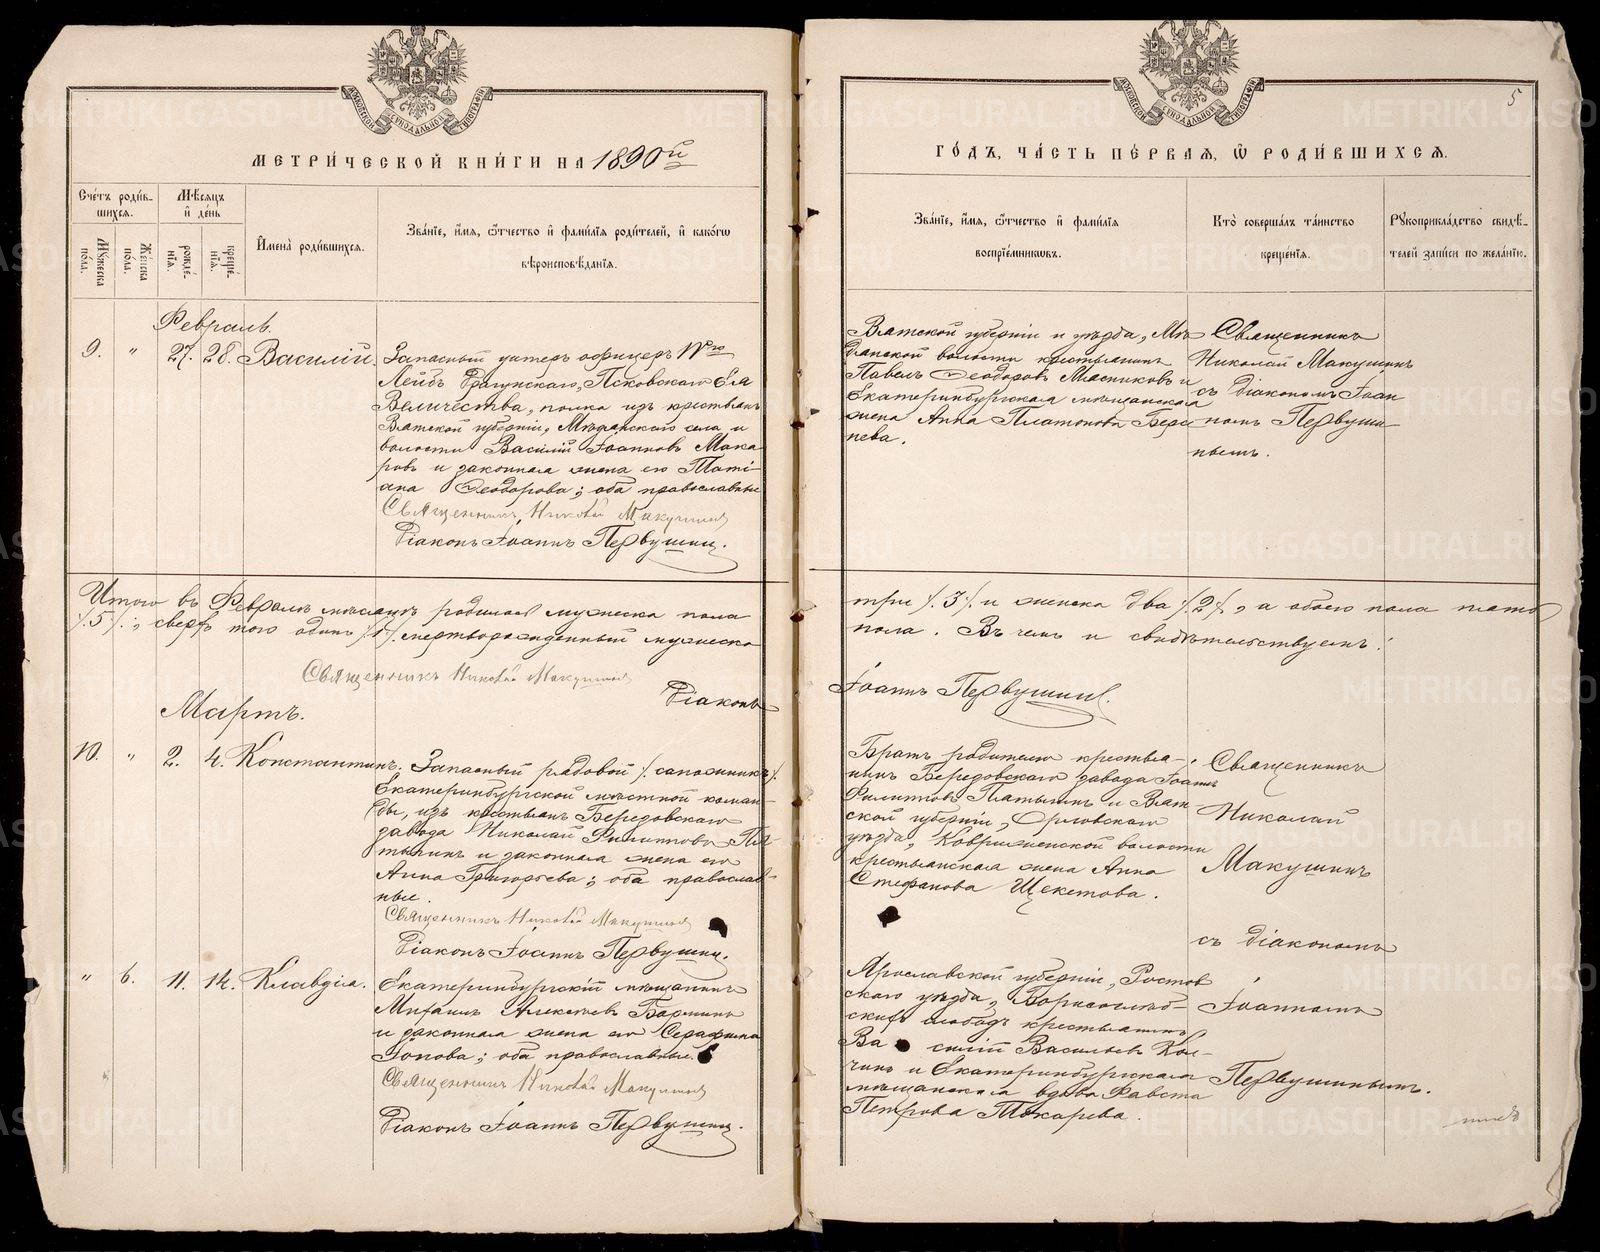 МЕТРИ́ЧЕСКОЙ КНИ́ГИ НА 1890й
Сче́тъ роди́в-
шихся.
Мꙋжеска
по́ла.
Же́нска
по́ла.
Мѣ́сяцъ
и҆ де́нь
рожде́-
нїя.
креще́-
нїя.
И҆мена̀ роди́вшихся.
Зва́нїе, и҆́мя, ѻ҆́тчество и҆ фами́лїя роди́телей, и҆ како́гѡ
вѣроисповѣ́данїя.
Февраль.
9. " 27. 28. Василій.
Запасный унтеръ офицеръ №го
Лейбъ Драгунскаго, Псковскаго Ея
Величества, полка изъ крестьянъ
Вятской губерніи, села и
волости Василій Іоанновъ Мака
ровъ и законная жена его Тати-
ана Ѳеодорова; оба православные
Священникъ Николай Макушинъ
Діаконъ Іоаннъ Первушин.
Итого въ Февралѣ мѣсяцѣ родилось мужеска пола
/.5/.; сверхъ того одинъ /.1/. мертворожденный мужеска
Священникъ Николай Макушинъ
Діаконъ
Мартъ.
10. " 2. 4. Константинъ.
Запасный рядовой /. сапожникъ /.
Екатеринбургской мѣстной коман-
ды, изъ крестьянъ Березовскаго
завода Николай Филипповъ Пла-
тыгинъ и законная жена его
Анна Григорьева; оба православ-
ные.
Священникъ Николай Макушинъ
Діаконъ Іоаннъ Первушин.
" 6. 11. 14. Клавдія.
Екатеринбургскій мѣщанинъ
Михаилъ Алексѣевъ
и законная жена его Серафима
Іонова; оба православные.
Священникъ Николай Макушинъ
Діаконъ Іоаннъ Первушин.
5
ГО́ДЪ, ЧА́СТЬ ПЕ́РВАЯ, Ѡ҆ РОДИ́ВШИХСЯ.
Зва́нїе, и҆́мя, ѻ҆́тчество и҆ фами́лїя
воспрїе́мникѡвъ.
Кто̀ соверша́лъ та́инство
креще́нїя.
Рꙋкоприкла́дство свидѣ́-
телей за́писи по жела́нїю.
Вятской губерніи и уѣзда,
волости крестьянинъ
Павелъ Ѳеодоровъ Мясниковъ и
Екатеринбургская мѣщанская
жена Анна Платонова Бере
нева.
Священникъ
Николай Макушинъ
съ діакономъ Іоан
номъ Первуши
нымъ.
три /.3/. и женска два /.2/., а обоего пола пять
пола. Въ чемъ и свидѣтельствуемъ:
Іоаннъ Первушин.
Братъ родителя крестья-
нинъ Березовскаго завода Іоаннъ
Филипповъ Платыгинъ и Вят
ской губерніи, Орловскаго
уѣзда, волости
крестьянская жена Анна
Стефанова Щекотова.
Священникъ
Николай
Макушинъ
съ діакономъ
Ярославской губерніи, Ростов
скаго уѣзда, Борисоглѣб-
скихъ слободъ крестьянинъ
Василій Васильевъ
и Екатеринбургская
мѣщанская вдова Фавста
Петрова Токарева.
Іоанномъ
Первушинымъ.